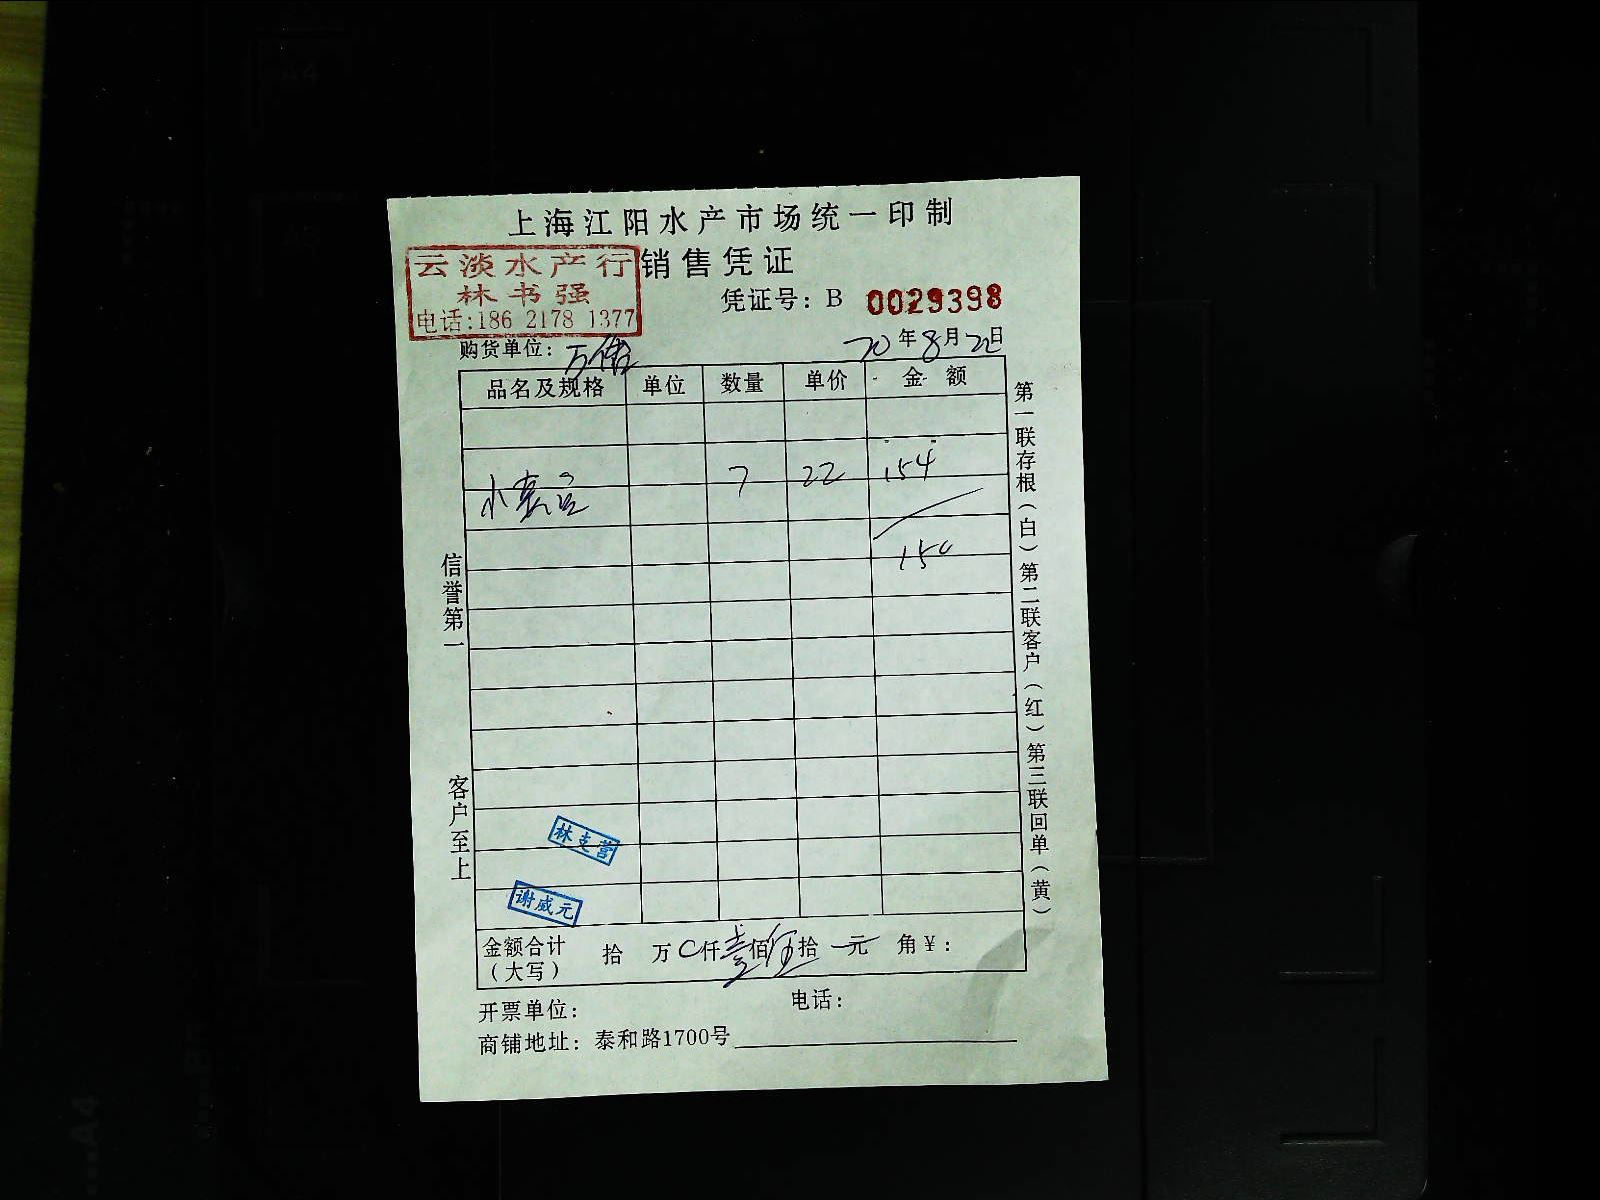 上海江阳水产市场统一印制
销售凭证
云淡水产行
林书强
电话:186 2178 1377
凭证号：B 0029398
购货单位：万
20年8月22日
品名及规格 单位 数量 单价 金额
小 7 22 154
150
信誉第一
客户至上
第一联存根（白）第二联客户（红）第三联回单（黄）
林支营
谢威元
金额合计（大写） 拾 万 0仟壹佰伍拾 元 角￥：
开票单位： 电话：
商铺地址：泰和路1700号